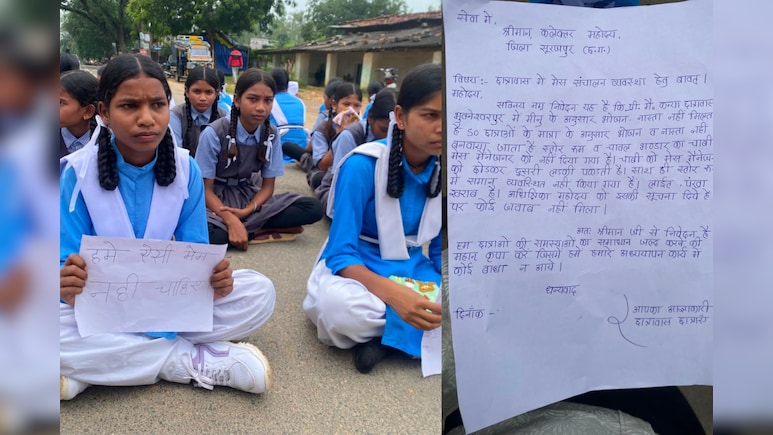 हमे ऐसी मेम
नही चाहिए
सेवा में,
श्रीमान कलेक्टर महोदय,
जिला सूरजपुर (छ.ग.)
विषय:- छात्रावास में मेस संचालन व्यवस्था हेतु बाबत् ।
महोदय,
सविनय नम्र निवेदन यह है कि, प्री. मै. कन्या छात्रावास
भुवनेश्वरपुर में मीनू के अनुसार भोजन, नास्ता नहीं मिलता
है 50 छात्राओं के मात्रा के अनुसार भोजन व नास्ता नहीं
बनवाया जाता है स्टोर रूम व चावल भण्डार का चाबी
मेस मैनेजर को नहीं दिया गया है। चाबी को मेस मैनेजर
को छोड़कर दूसरी लड़की पकड़ती है। साथ ही स्टोर रूम
में समान व्यवस्थित नहीं किया गया है। लाईट, पंखा
खराब है। अधिक्षिका महोदय को इसकी सूचना दिये है
पर कोई जवाब नहीं मिला।
अतः श्रीमान जी से निवेदन है
हम छात्राओं की समस्याओं का समाधान जल्द करने की
महान कृपा करें जिसमें हमें हमारे अध्ययापन कार्य में
कोई बाधा न आये।
धन्यवाद
दिनाँक -
आपका आज्ञाकारी
छात्रावास छात्राएं